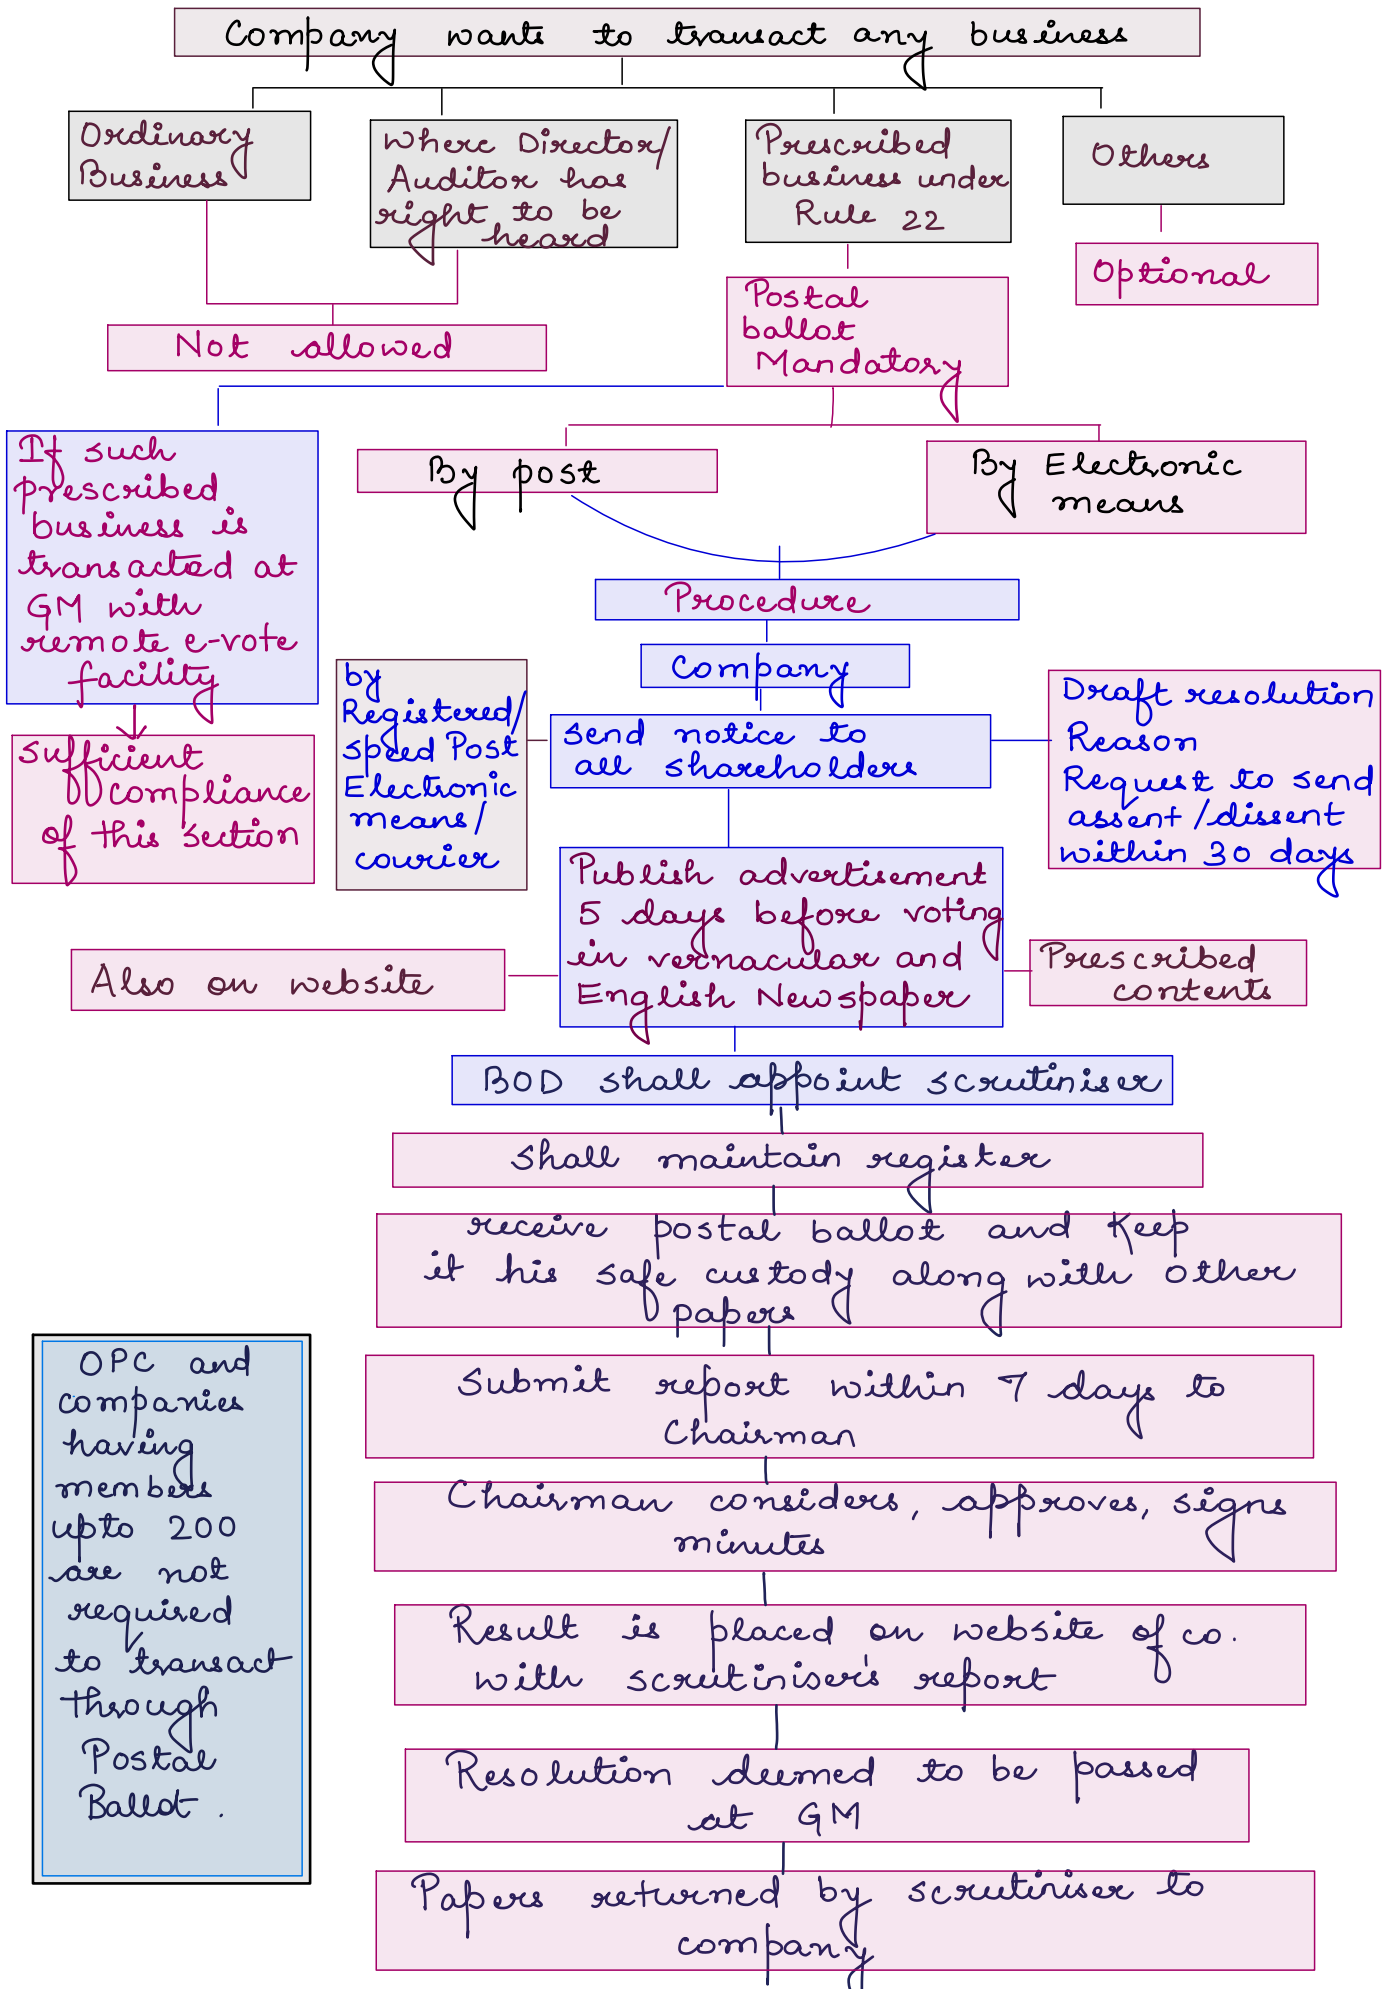 Company wants to transact any business
Ordinary
Business
Where Director/
Auditor has
right to be
heard
Prescribed
business under
Rule 22
Others
Optional
Not allowed
Postal
ballot
Mandatory
If such
prescribed
business is
transacted at
GM with
remote e-vote
facility
sufficient
compliance
of this section
By post
By Electronic
means
Procedure
Company
by
Registered/
speed Post
Electronic
means/
courier
send notice to
all shareholders
Draft resolution
Reason
Request to send
assent/dissent
within 30 days
Publish advertisement
5 days before voting
in vernacular and
English Newspaper
Also on website
Prescribed
contents
BOD shall appoint scrutiniser
Shall maintain register
receive postal ballot and Keep
it his safe custody along with other
papers
Submit report within 7 days to
Chairman
Chairman considers, approves, signs
minutes
Result is placed on website of co.
with scrutiniser's report
Resolution deemed to be passed
at GM
Papers returned by scrutiniser to
company
OPC and
companies
having
members
upto 200
are not
required
to transact
through
Postal
Ballot.